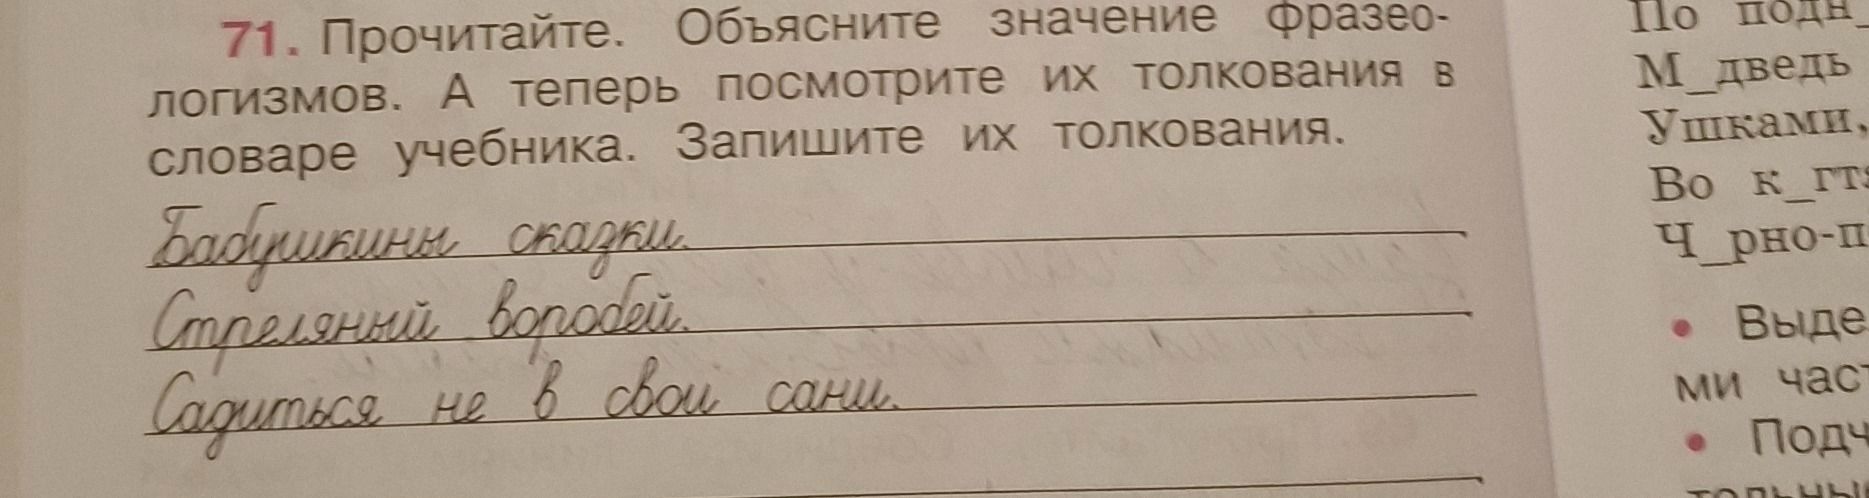 71. Прочитайте. Объясните значение фразео-
логизмов. А теперь посмотрите их толкования в
словаре учебника. Запишите их толкования.
Бабушкины сказки.
Стреляный воробей.
Садиться не в свои сани.
По подн_
М_дведь
Ушками,
Во к_гтя
Ч_рно-п
• Выде
ми час
• Подч